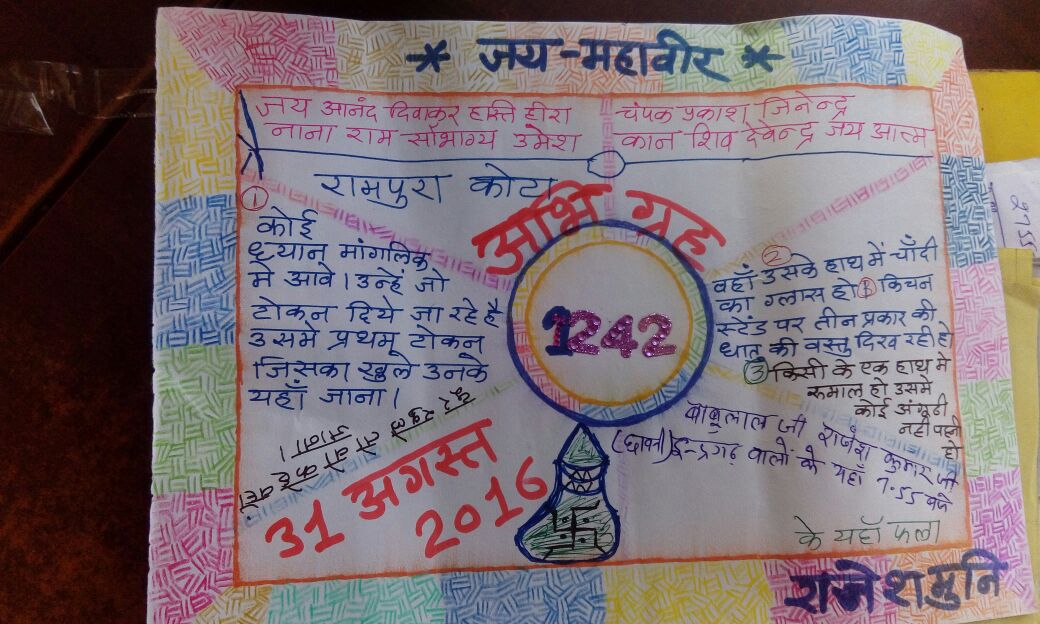 * जय-महावीर *
जय आनंद दिवाकर हस्ति हीरा
नाना राम सौभाग्य उमेश
चंपक प्रकाश जिनेन्द्र
कान शिव देवेन्द्र जय आत्म
रामपुरा कोटा
अभि ग्रह
1242
①
कोई
ध्यान मांगलिक
मे आवे। उन्हें जो
टोकन दिये जा रहे है
उसमे प्रथम टोकन
जिसका खुले उनके
यहाँ जाना।
②
वहाँ उसके हाथ में चाँदी
का ग्लास हो ③ किचन
स्टेंड पर तीन प्रकार की
धातु की वस्तु दिख रही हो
③ किसी के एक हाथ मे
रूमाल हो उसमे
कोई अंगूठी
नही पहनी
हो
31 अगस्त
2016
बाबुलाल जी राजेश कुमार जी
(छावनी) इन्द्रगढ़ वालों के यहाँ 7.55 बजे
के यहाँ फला
राजेशमुनि
2155